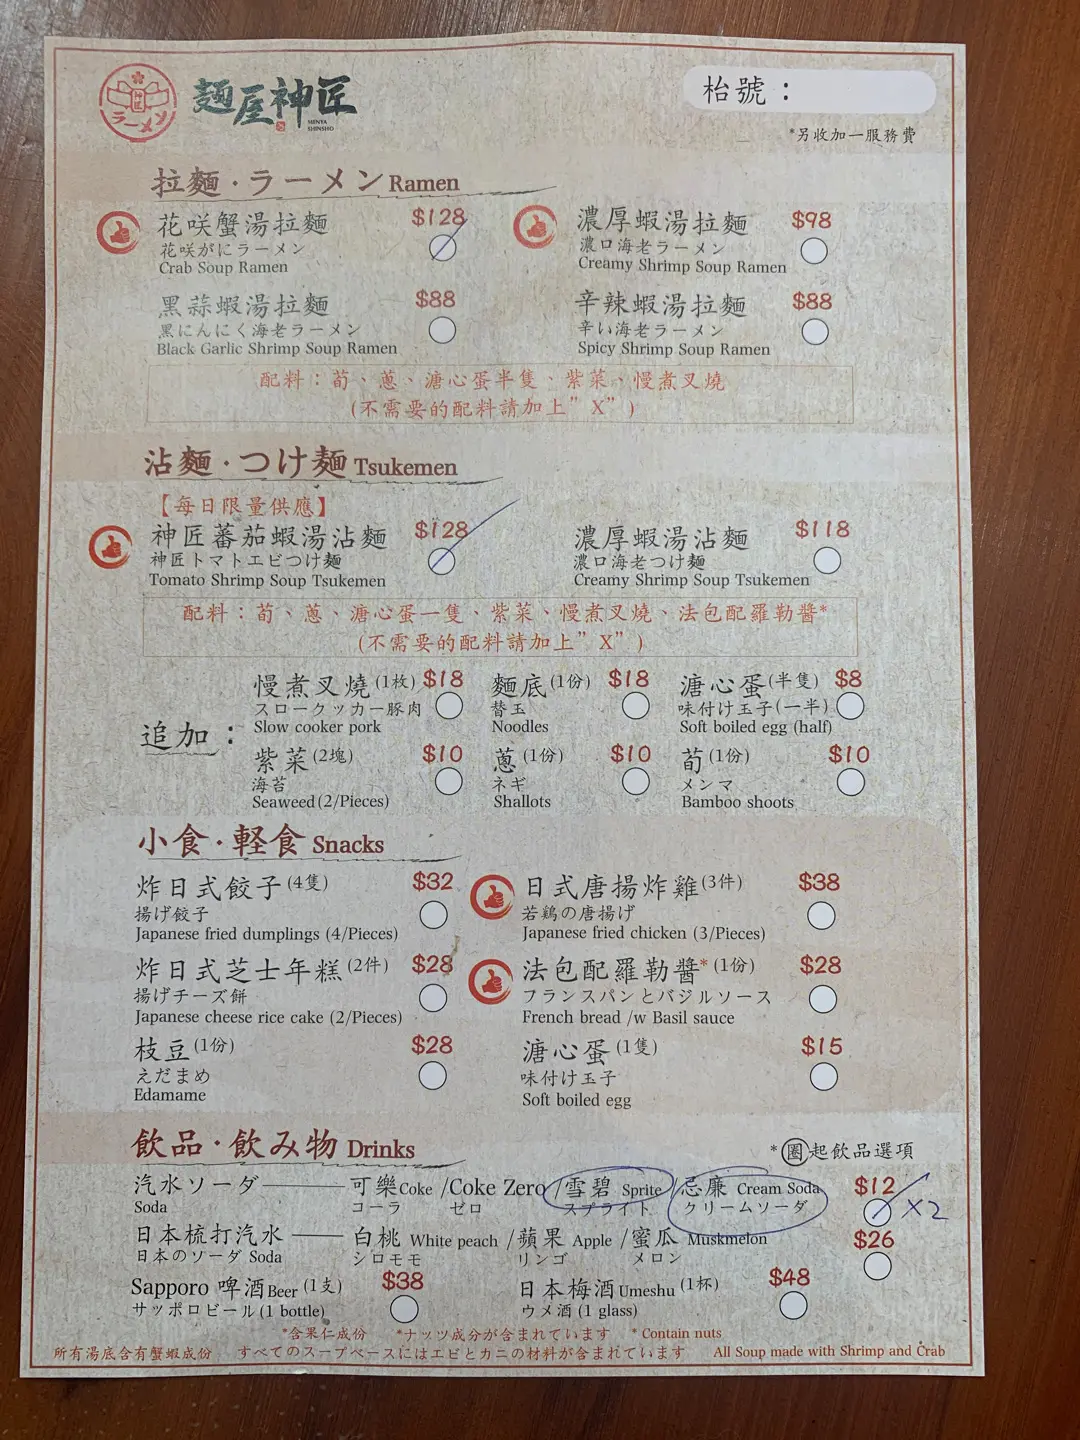 ラーメン
神匠
麵屋神匠
MENYA
SHINSHO
枱號：
*另收加一服務費
拉麵·ラーメン Ramen
花咲蟹湯拉麵 $128
花咲がにラーメン
Crab Soup Ramen
濃厚蝦湯拉麵 $98
濃口海老ラーメン
Creamy Shrimp Soup Ramen
黑蒜蝦湯拉麵 $88
黑にんにく海老ラーメン
Black Garlic Shrimp Soup Ramen
辛辣蝦湯拉麵 $88
辛い海老ラーメン
Spicy Shrimp Soup Ramen
配料：荀、蔥、溏心蛋半隻、紫菜、慢煮叉燒
(不需要的配料請加上”X”)
沾麵·つけ麵 Tsukemen
【每日限量供應】
神匠蕃茄蝦湯沾麵 $128
神匠トマトエビつけ麵
Tomato Shrimp Soup Tsukemen
濃厚蝦湯沾麵 $118
濃口海老つけ麵
Creamy Shrimp Soup Tsukemen
配料：荀、蔥、溏心蛋一隻、紫菜、慢煮叉燒、法包配羅勒醬*
(不需要的配料請加上”X”)
追加：
慢煮叉燒(1枚) $18
スロークッカー豚肉
Slow cooker pork
麵底(1份) $18
替玉
Noodles
溏心蛋(半隻) $8
味付け玉子(一半)
Soft boiled egg (half)
紫菜(2塊) $10
海苔
Seaweed(2/Pieces)
蔥(1份) $10
ネギ
Shallots
荀(1份) $10
メンマ
Bamboo shoots
小食·軽食 Snacks
炸日式餃子(4隻) $32
揚げ餃子
Japanese fried dumplings (4/Pieces)
日式唐揚炸雞(3件) $38
若鶏の唐揚げ
Japanese fried chicken (3/Pieces)
炸日式芝士年糕(2件) $28
揚げチーズ餅
Japanese cheese rice cake (2/Pieces)
法包配羅勒醬*(1份) $28
フランスパンとバジルソース
French bread /w Basil sauce
枝豆(1份) $28
えだまめ
Edamame
溏心蛋(1隻) $15
味付け玉子
Soft boiled egg
飲品·飲み物 Drinks
*圈起飲品選項
汽水ソーダ 可樂Coke /Coke Zero /雪碧 Sprite /忌廉 Cream Soda $12
Soda コーラ ゼロ スプライト クリームソーダ
X2
日本梳打汽水 白桃 White peach /蘋果 Apple /蜜瓜 Muskmelon $26
日本のソーダ Soda シロモモ リンゴ メロン
Sapporo 啤酒Beer (1支) $38
サッポロビール(1 bottle)
日本梅酒Umeshu (1杯) $48
ウメ酒 (1 glass)
*含果仁成份 *ナッツ成分が含まれています * Contain nuts
所有湯底含有蟹蝦成份 すべてのスープベースにはエビとカニの材料が含まれています All Soup made with Shrimp and Crab